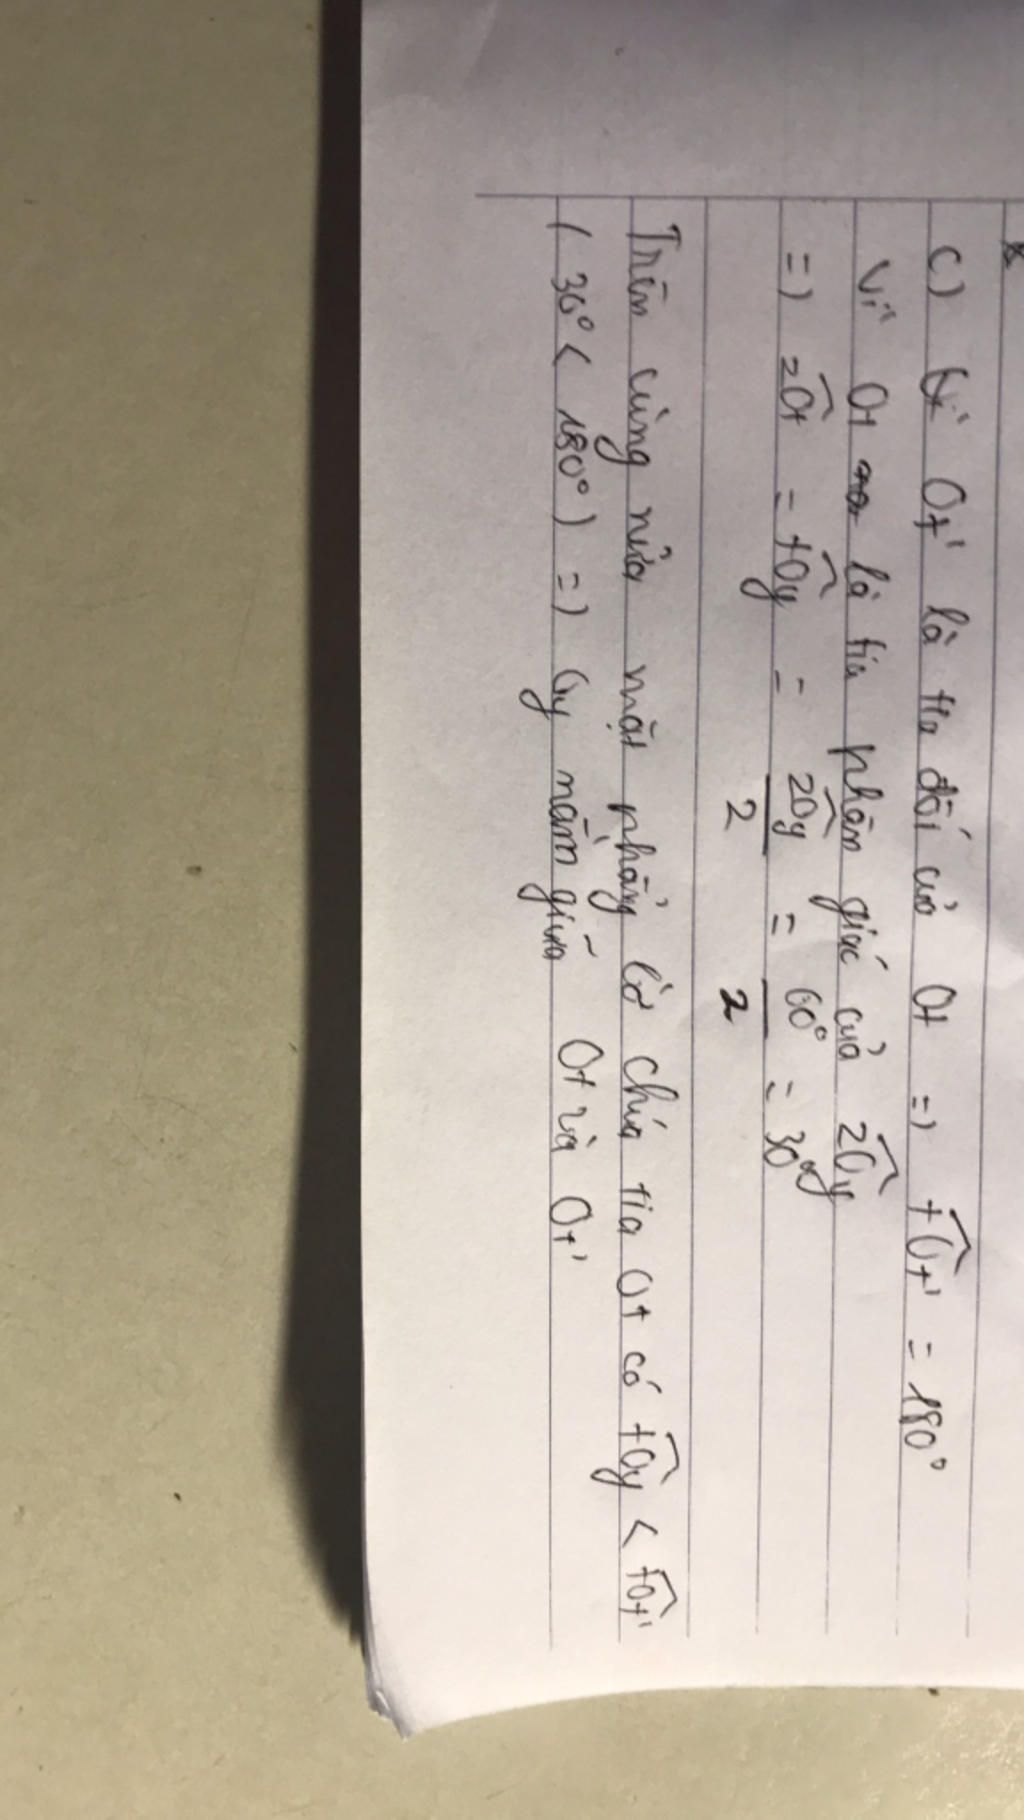 c) Vì Ot' là tia đối của Ot => tOt' = 180°
Vì Ot là tia phân giác của zOy
=> zOt = tOy = zOy/2 = 60°/2 = 30°
Trên cùng nửa mặt phẳng bờ chứa tia Ot có tOy < tOt'
( 30° < 180° ) => Oy nằm giữa Ot và Ot'